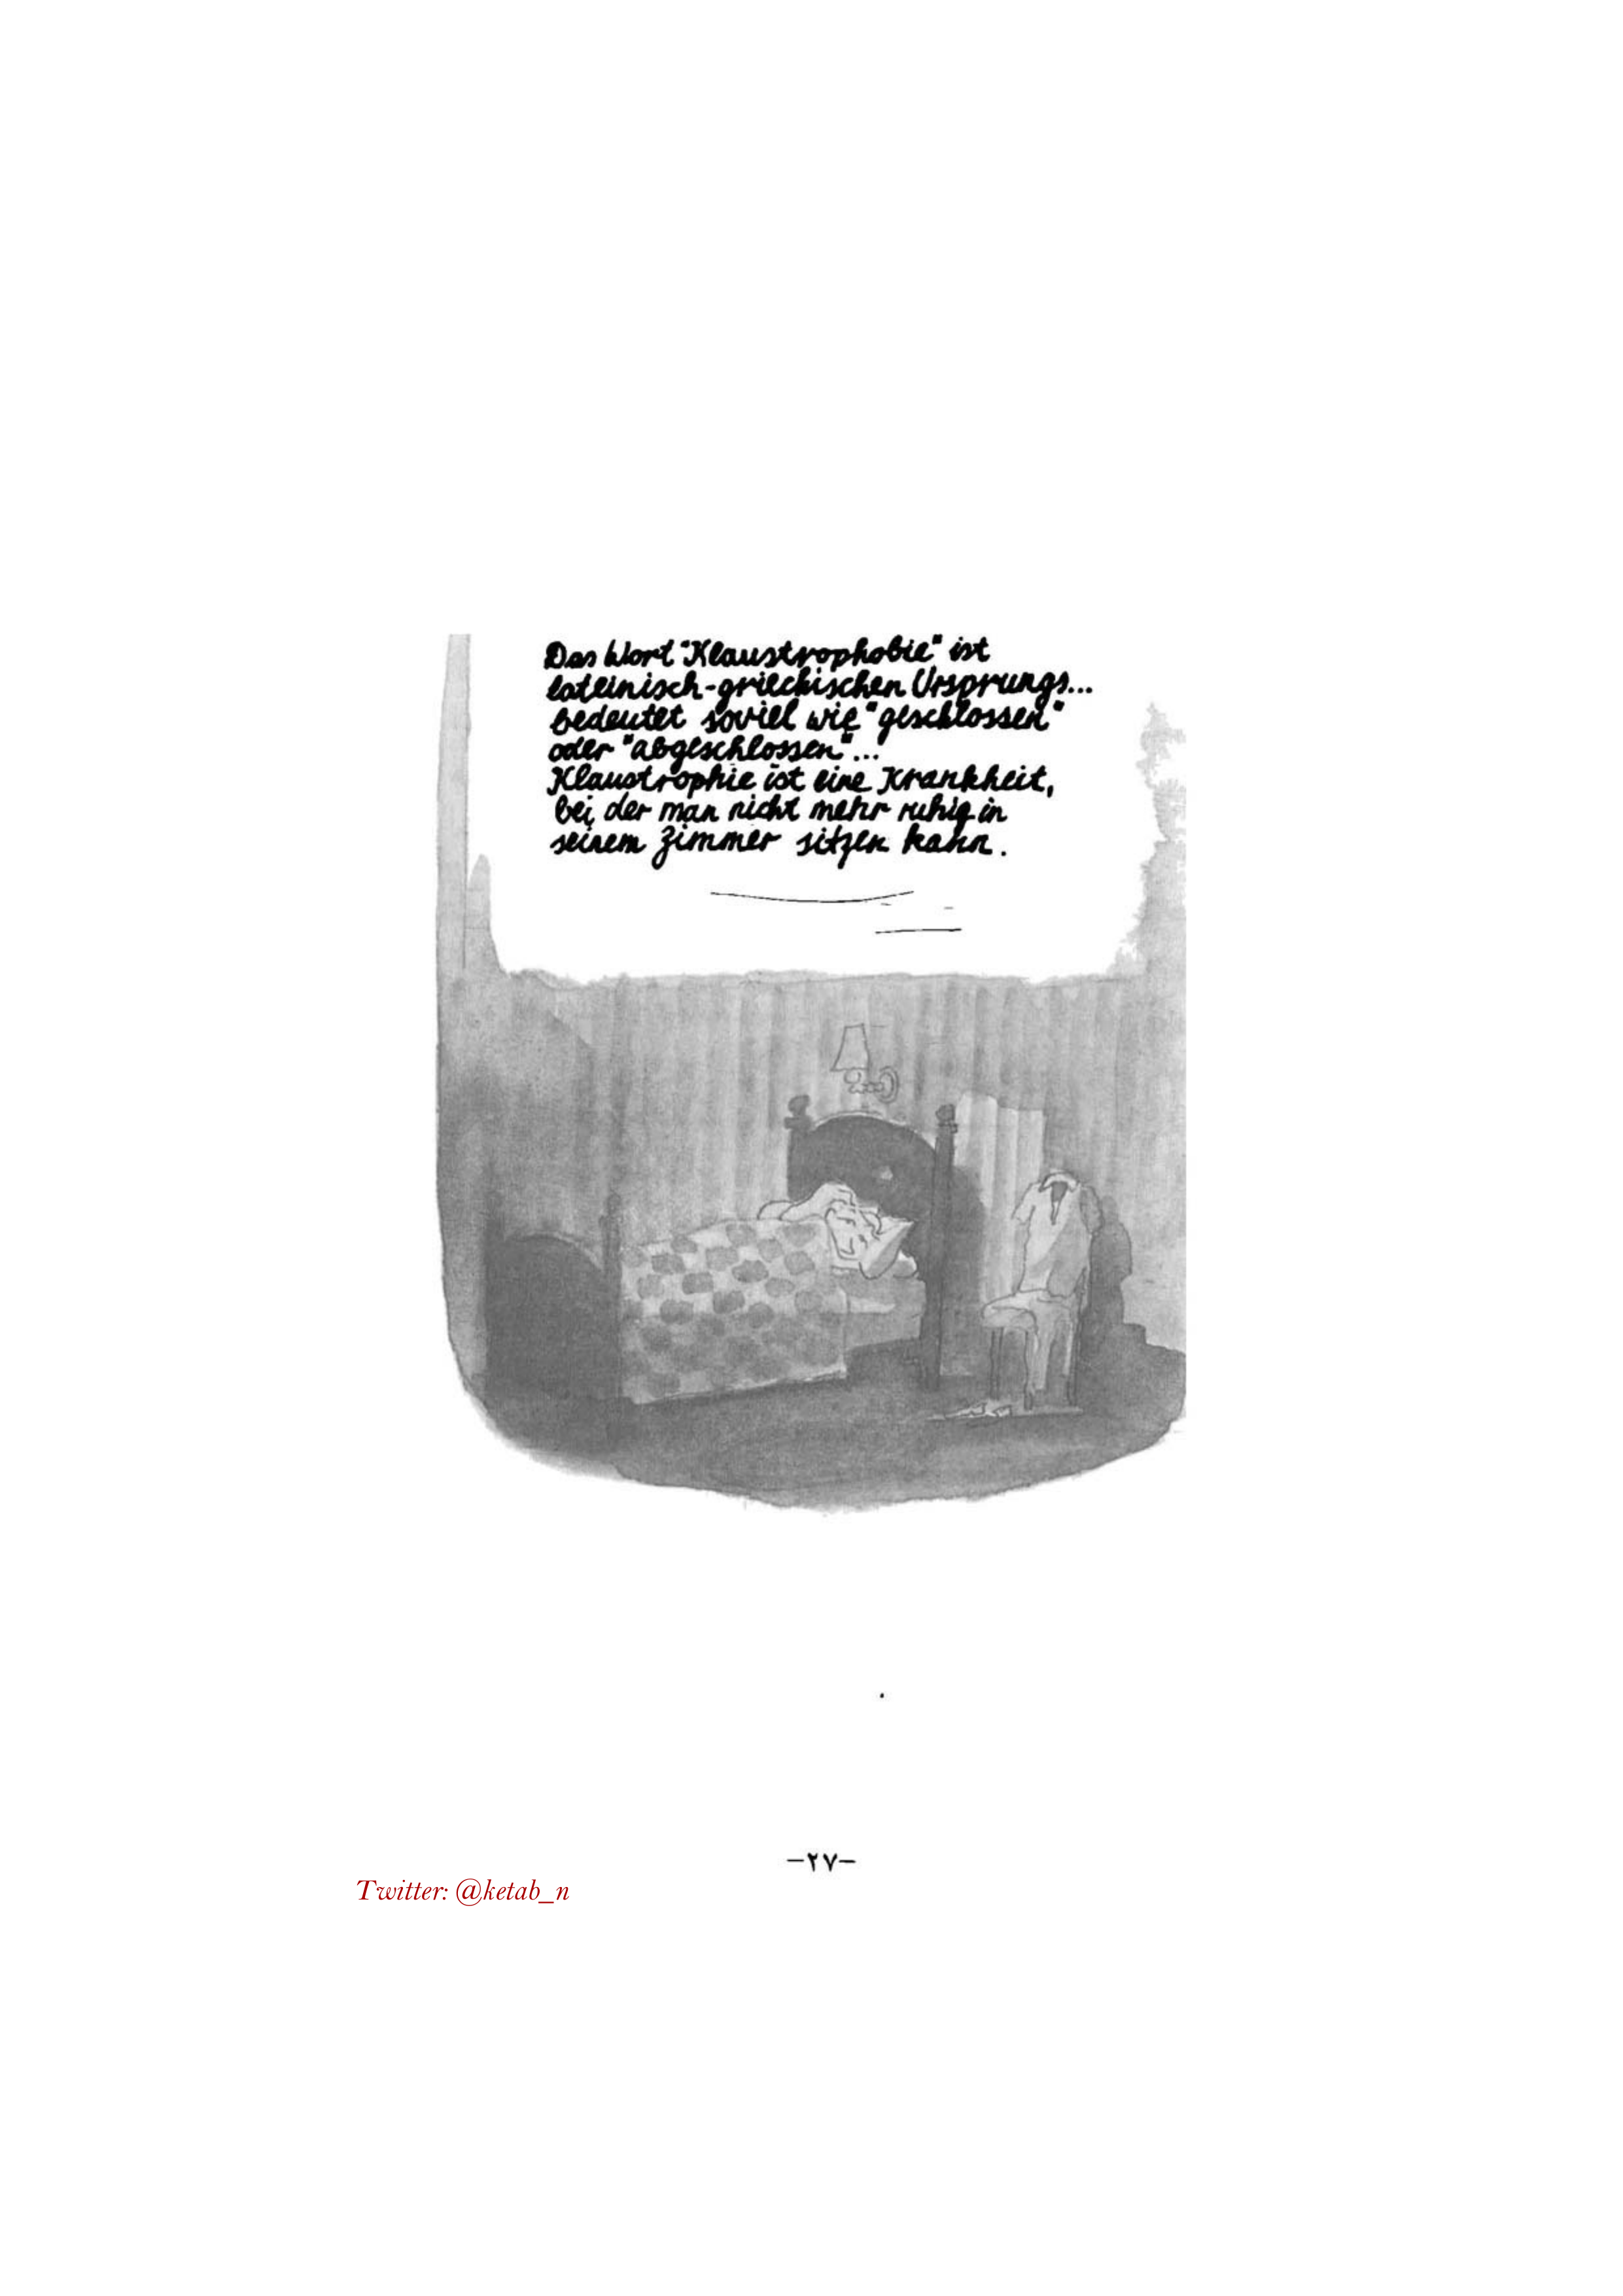 Das Wort "Klaustrophobie" ist
lateinisch-griechischen Ursprungs...
bedeutet soviel wie "geschlossen"
oder "abgeschlossen"...
Klaustrophie ist eine Krankheit,
bei der man nicht mehr ruhig in
seinem Zimmer sitzen kann.
-٢٧-
Twitter: @ketab_n